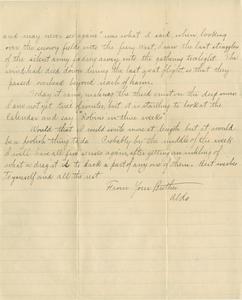 and may never see again" was what I said when looking
over the snowy fields into the grey east, I saw the last struggles
of the silent army fading away into the gathering twilight. The
wind had died down during the last great flight so that they
passed overhead beyond reach of harm.
Today it came, makes the third crust on the deep snow
I am not yet tired of winter, but it is startling to look at the
Calendar and say "Robins in three weeks".
Would that I could write more at length but it would
be a foolish thing to do. Probably by the middle of the week
I will have all five senses again, after getting an inkling of
what a drag it is to lack a part of any one of them. Best wishes
to yourself and all the rest
From Your Brother
Aldo